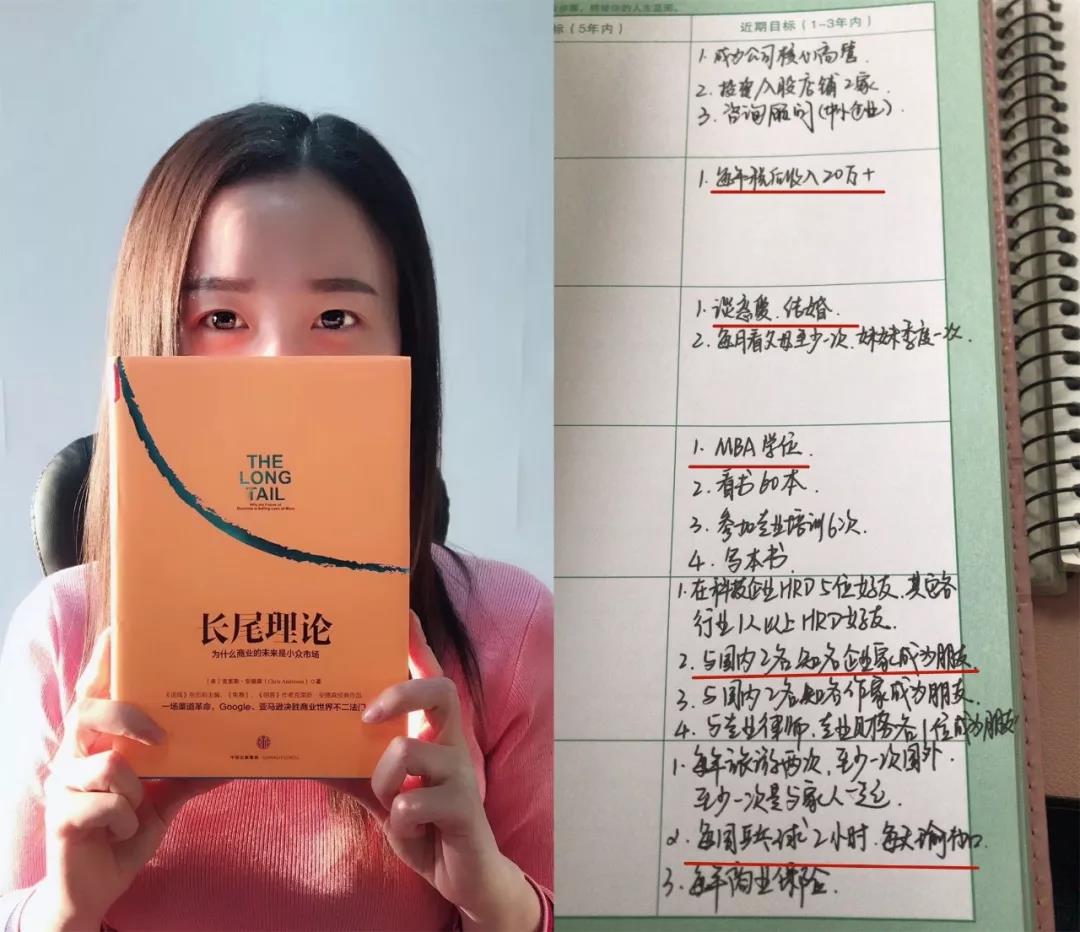 THE
LONG
TAIL
Why the Future of
Business is Selling Less of More
长尾理论
为什么商业的未来是小众市场
[美] 克里斯·安德森 (Chris Anderson) ◎著
一场渠道革命，Google、亚马逊决胜商业世界不二法门
中信出版集团
标（5年内）
近期目标（1-3年内）
1. 成为公司核心高管.
2. 投资入股店铺2家.
3. 咨询顾问(中小企业).
1. 每年税后收入20万+
1. 谈恋爱、结婚.
2. 每月看父母至少一次、妹妹季度一次.
1. MBA学位.
2. 看书60本.
3. 参加专业培训6次.
4. 写本书.
1. 在科技企业HRD5位好友，其它各
行业1人以上HRD好友.
2. 与国内2名知名企业家成为朋友.
3. 与国内2名知名作家成为朋友.
4. 与专业律师、专业财务各1位成为朋友
1. 每年旅游两次，至少一次国外.
至少一次是与家人一起.
2. 每周乒乓球2小时、每天瑜伽.
3. 每年商业保险.